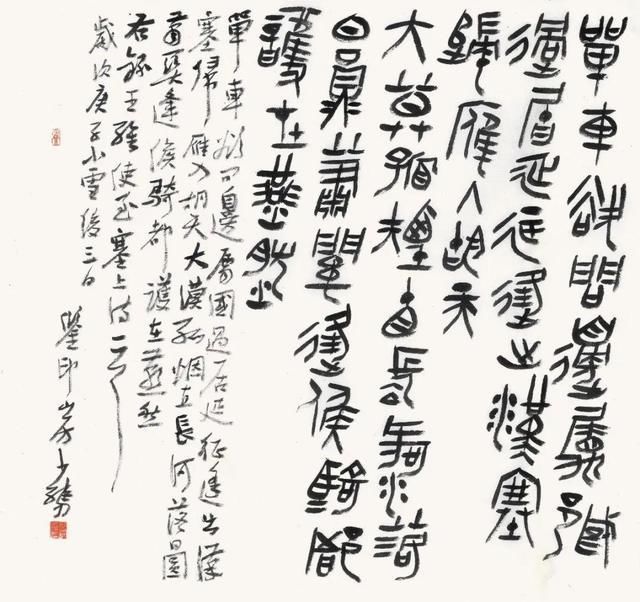 單車欲問邊屬國
過居延征蓬出漢塞
歸雁入胡天
大漠孤煙直長河落
日圓蕭關逢候騎都
護在燕然
單車欲問邊屬國過居延征蓬出漢
塞歸雁入胡天大漠孤烟直長河落日圓
蕭關逢候騎都護在燕然
右錄王維使至塞上詩一首
歲次庚子小雪後三日鑿印山房